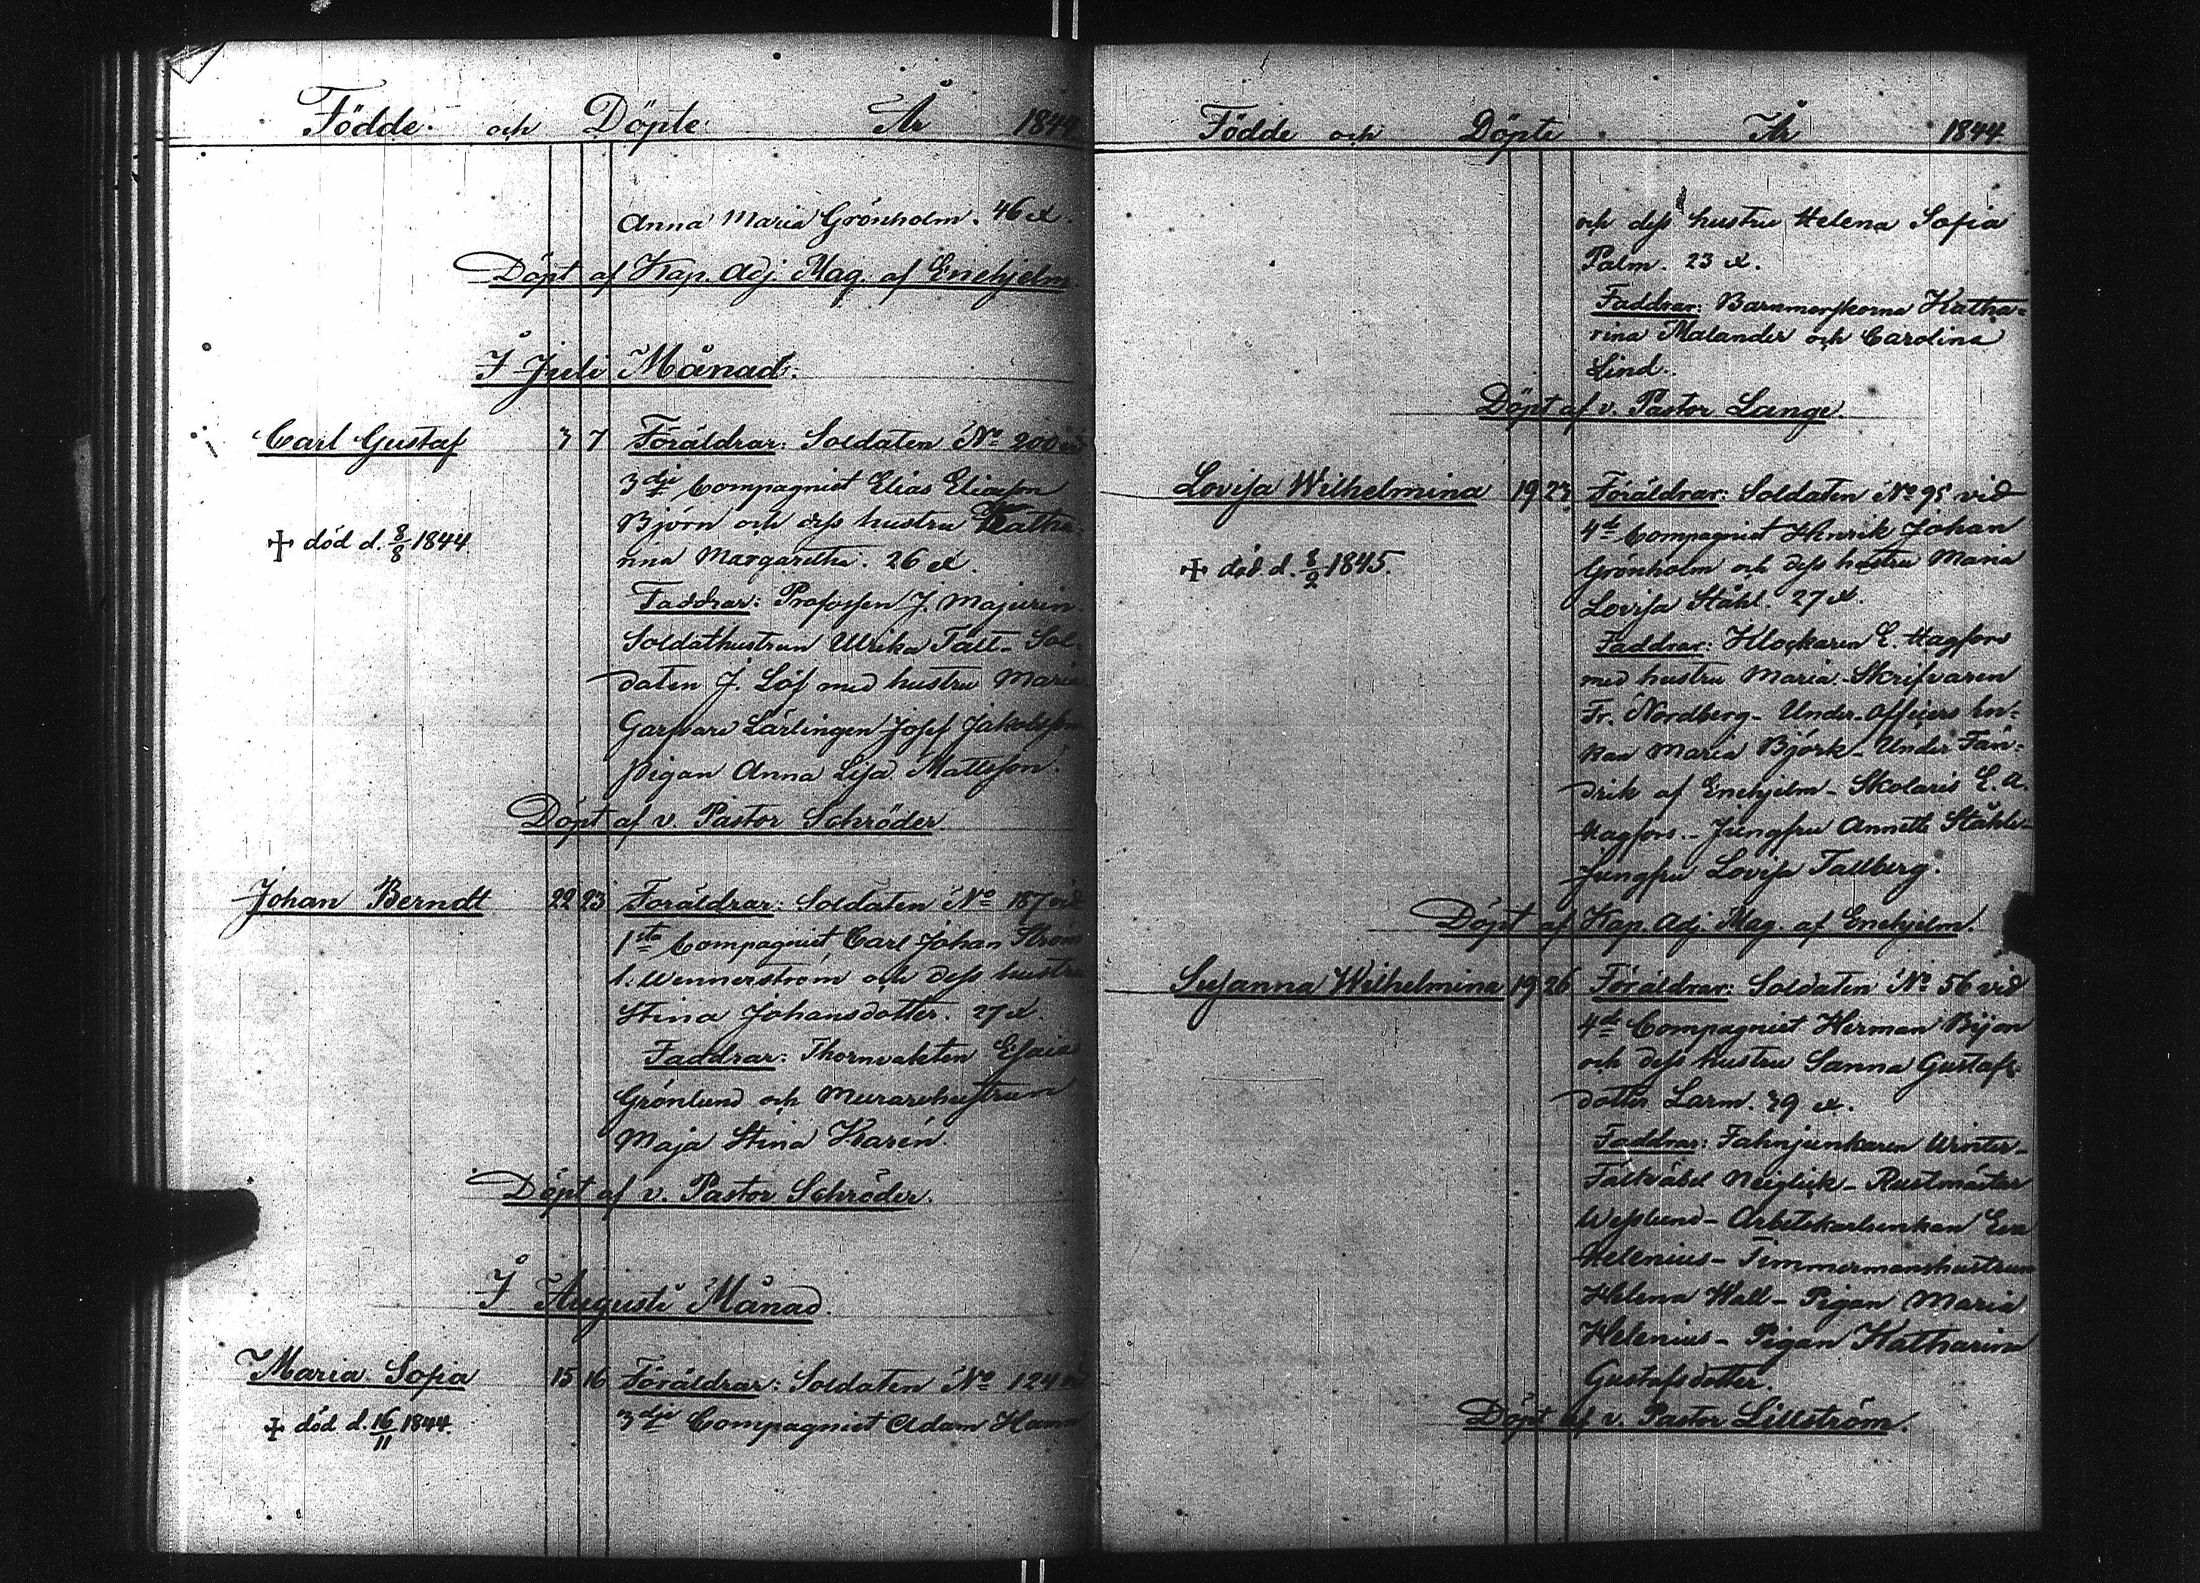 Födde och Döpte År 1844
Anna Maria Grönholm. 46 
Döpt af Kap. Adj. Mag. af Enehjelm
I Juli Månad.
Carl Gustaf 3 7 Föräldrar: Soldaten No 200
3dje Compagniet Elias Eliasson
Björn och dess hustru Katha-
rina Margaretha. 26
† död d. 8/8 1844.
Faddrar: Profossen J. Majurin
Soldathustrun Ulrika Tält - Sol-
daten J. Löf med hustru Maria
Garfvare Lärlingen Josef Jakobsson
Pigan Anna Lisa Mattsson.
Döpt af v. Pastor Schröder.
Johan Berndt 22 23 Föräldrar: Soldaten No 187 vid
1sta Compagniet Carl Johan Ström
l. Wennerström och dess hustru
Stina Johansdotter. 27
Faddrar: Thornvakten Esaias
Grönlund och Murarehustrun
Maja Stina Karén
Döpt af v. Pastor Schröder.
I Augusti Månad.
Maria Sofia 15 16 Föräldrar: Soldaten No 124
† död d. 16/11 1844.
3dje Compagniet Adam
Födde och Döpte År 1844
och dess hustru Helena Sofia
Palm. 23
Faddrar: Barnmorskorna Katha-
rina Malander och Carolina
Lind.
Döpt af v. Pastor Lange.
Lovisa Wilhelmina 19 23 Föräldrar: Soldaten No 95 vid
4de Compagniet Henrik Johan
Grönholm och dess hustru Maria
Lovisa Ståhl. 27
† död. d. 8/2 1845.
Faddrar: Klockaren E. Hagfors
med hustru Maria - Skrifvaren
Fr. Nordberg - Under-officers En-
kan Maria Björk - Under Fän-
drik af Enehjelm - Skolaris E. A.
Hagfors. - Jungfru Annette Ståhle -
Jungfru Lovisa Tallberg.
Döpt af Kap. Adj. Mag. af Enehjelm.
Susanna Wilhelmina 19 26 Föräldrar: Soldaten No 56 vid
4de Compagniet Herman Bijon
och dess hustru Sanna Gustafs-
dotter Larm. 39
Faddrar: Fahnjunkaren Winter -
Fältväbel Neiglick - Rustmäster
Wesslund - Arbetskarlsenkan Eva
Helenius - Timmermanshustrun
Helena Wall - Pigan Maria
Helenius - Pigan Katharina
Gustafsdotter.
Döpt af v. Pastor Lillström.